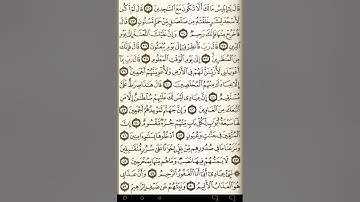 قَالَ يَٰٓإِبۡلِيسُ مَا لَكَ أَلَّا تَكُونَ مَعَ ٱلسَّٰجِدِينَ ٣٢ قَالَ لَمۡ أَكُن
لِّأَسۡجُدَ لِبَشَرٍ خَلَقۡتَهُۥ مِن صَلۡصَٰلٖ مِّنۡ حَمَإٖ مَّسۡنُونٖ ٣٣ قَالَ
فَٱخۡرُجۡ مِنۡهَا فَإِنَّكَ رَجِيمٞ ٣٤ وَإِنَّ عَلَيۡكَ ٱللَّعۡنَةَ إِلَىٰ يَوۡمِ
ٱلدِّينِ ٣٥ قَالَ رَبِّ فَأَنظِرۡنِيٓ إِلَىٰ يَوۡمِ يُبۡعَثُونَ ٣٦ قَالَ فَإِنَّكَ
مِنَ ٱلۡمُنظَرِينَ ٣٧ إِلَىٰ يَوۡمِ ٱلۡوَقۡتِ ٱلۡمَعۡلُومِ ٣٨ قَالَ رَبِّ بِمَآ
أَغۡوَيۡتَنِي لَأُزَيِّنَنَّ لَهُمۡ فِي ٱلۡأَرۡضِ وَلَأُغۡوِيَنَّهُمۡ أَجۡمَعِينَ ٣٩
إِلَّا عِبَادَكَ مِنۡهُمُ ٱلۡمُخۡلَصِينَ ٤٠ قَالَ هَٰذَا صِرَٰطٌ عَلَيَّ
مُسۡتَقِيمٌ ٤١ إِنَّ عِبَادِي لَيۡسَ لَكَ عَلَيۡهِمۡ سُلۡطَٰنٌ إِلَّا مَنِ
ٱتَّبَعَكَ مِنَ ٱلۡغَاوِينَ ٤٢ وَإِنَّ جَهَنَّمَ لَمَوۡعِدُهُمۡ أَجۡمَعِينَ ٤٣
لَهَا سَبۡعَةُ أَبۡوَٰبٖ لِّكُلِّ بَابٖ مِّنۡهُمۡ جُزۡءٞ مَّقۡسُومٌ ٤٤ إِنَّ
ٱلۡمُتَّقِينَ فِي جَنَّٰتٖ وَعُيُونٍ ٤٥ ٱدۡخُلُوهَا بِسَلَٰمٍ ءَامِنِينَ ٤٦
وَنَزَعۡنَا مَا فِي صُدُورِهِم مِّنۡ غِلٍّ إِخۡوَٰنًا عَلَىٰ سُرُرٖ مُّتَقَٰبِلِينَ
٤٧ لَا يَمَسُّهُمۡ فِيهَا نَصَبٞ وَمَا هُم مِّنۡهَا بِمُخۡرَجِينَ ٤٨
۞ نَبِّئۡ عِبَادِيٓ أَنِّيٓ أَنَا ٱلۡغَفُورُ ٱلرَّحِيمُ ٤٩ وَأَنَّ عَذَابِي
هُوَ ٱلۡعَذَابُ ٱلۡأَلِيمُ ٥٠ وَنَبِّئۡهُمۡ عَن ضَيۡفِ إِبۡرَٰهِيمَ ٥١